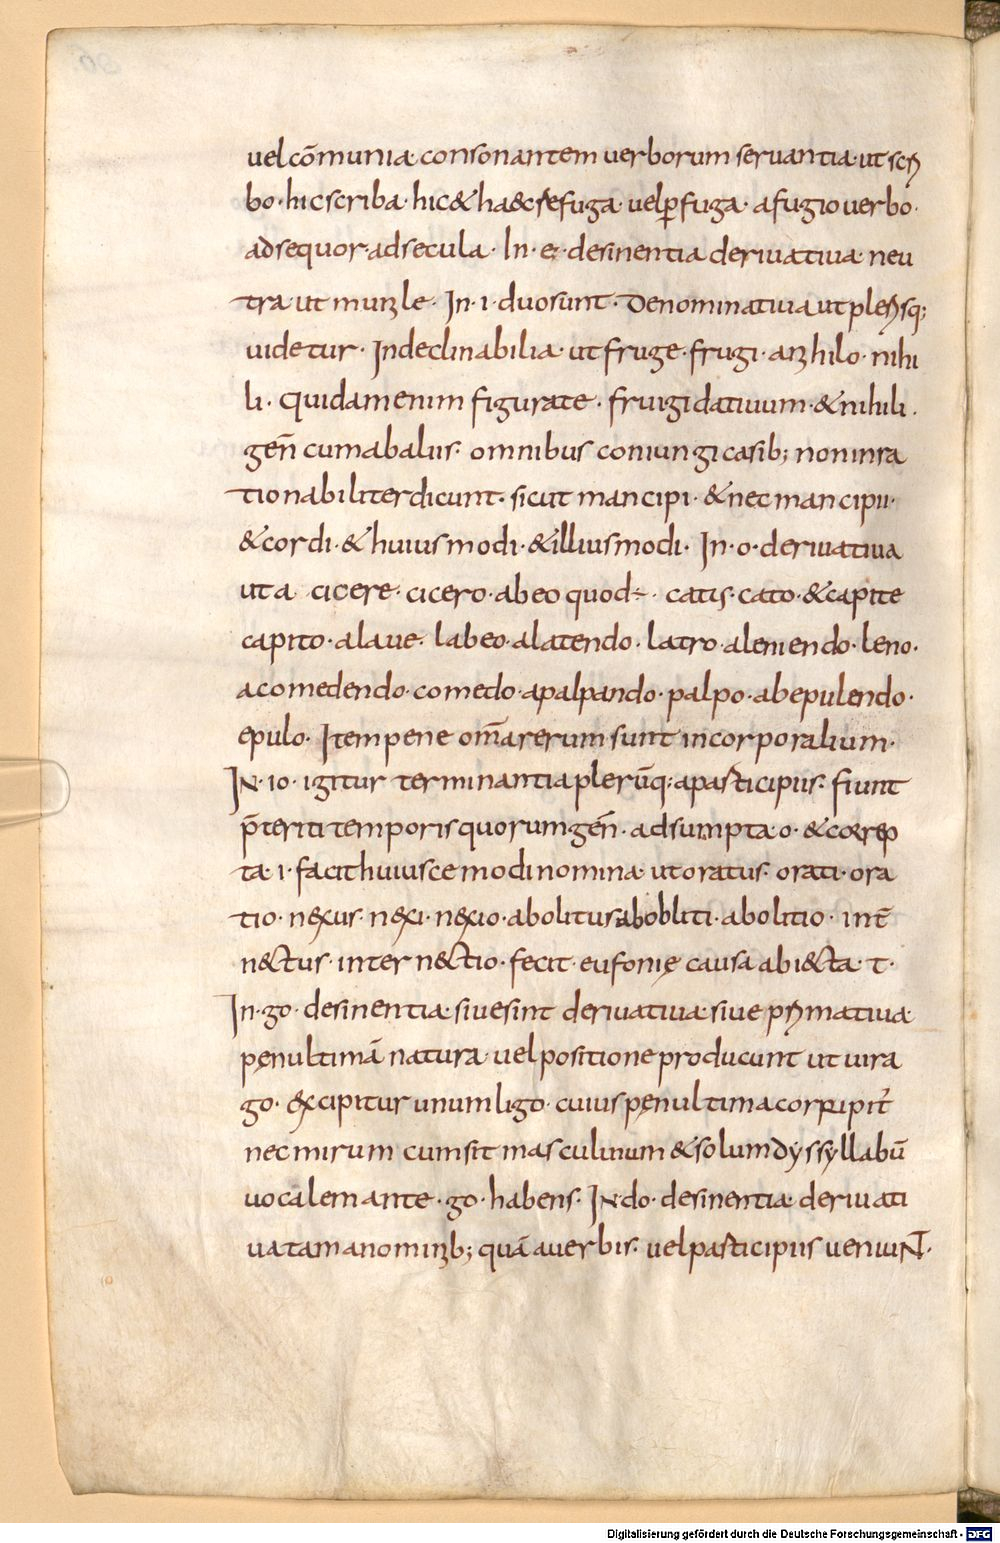 uel cōmunia consonantem uerborum seruantia· ut scri
bo· hic scriba· hic & haec refuga· uel ꝑfuga· a fugio uerbo·
ad sequor adsecula· In· e· desinentia deriuatiua neu
tra ut munale· In· i· duo sunt· Denominatiua ut plerisq;
uidetur· Indeclinabilia· ut fruge· frugi· a nihilo· nihi
li· Quidam enim figurate· frugi datiuum· & nihili·
geñ cum ab aliis· omnibus coniungi casib; non inra
tionabiliter dicunt· sicut mancipi· & nec mancipii·
& cordi· & huius modi· & illius modi· In· o· deriuatiua
ut a cicere· cicero· ab eo quod ÷· catis· cato· & capite
capito· a laue· labeo· a latendo· latro· a leniendo· leno·
a comedendo· comedo· a palpando· palpo· ab epulendo·
epulo· Item pene om̄a rerum sunt incorporalium·
IN· io· igitur terminantia plerūq; a participiis· fiunt
p̄teriti temporis quorum geñ· adsumpta o· & correp
ta· i· facit huiuscemodi nomina· ut oratus· orati· ora
tio· nexus· nexi· nexio· abolitus abobliti· abolitio· int̄
nectus· internectio· fecit· eufonię causa abiecta· t·
In· go· desinentia siue sint deriuativa· siue primatiua
pęnultimā natura· uel positione producunt ut uira
go· excipitur unum ligo· cuius pęnultima corripit̄
nec mirum cum sit masculinum & solum dyssyllabū
uocalem ante· go· habens· IN do· desinentia· deriuati
ua tam a nominib; quā a uerbis· uel participiis ueniuNT·
Digitalisierung gefördert durch die Deutsche Forschungsgemeinschaft - DFG